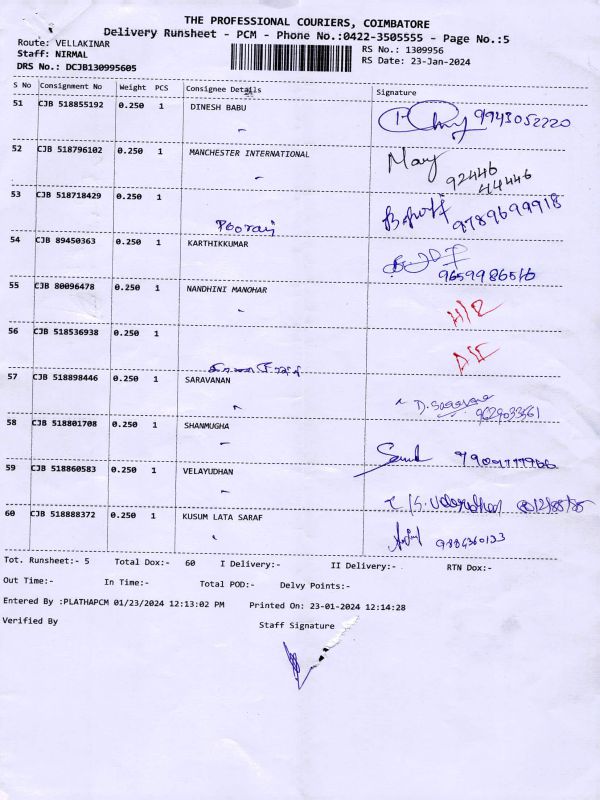 THE PROFESSIONAL COURIERS, COIMBATORE
Delivery Runsheet - PCM - Phone No.:0422-3505555 - Page No.:5
Route: VELLAKINAR
RS No.: 1309956
Staff: NIRMAL
RS Date: 23-Jan-2024
DRS No.: DCJB130995605
S No Consignment No Weight PCS Consignee Details Signature
51 CJB 518855192 0.250 1 DINESH BABU 9943052220
52 CJB 518796102 0.250 1 MANCHESTER INTERNATIONAL Mary 92446
44446
53 CJB 518718429 0.250 1 9789699918
54 CJB 89450363 0.250 1 KARTHIKKUMAR
9659986516
55 CJB 80096478 0.250 1 NANDHINI MANOHAR
56 CJB 518536938 0.250 1
57 CJB 518898446 0.250 1 SARAVANAN D. Saravana
9629033561
58 CJB 518801708 0.250 1 SHANMUGHA
59 CJB 518860583 0.250 1 VELAYUDHAN
60 CJB 518888372 0.250 1 KUSUM LATA SARAF
Tot. Runsheet:- 5 Total Dox:- 60 I Delivery:- II Delivery:- RTN Dox:-
Out Time:- In Time:- Total POD:- Delvy Points:-
Entered By :PLATHAPCM 01/23/2024 12:13:02 PM Printed On: 23-01-2024 12:14:28
Verified By Staff Signature